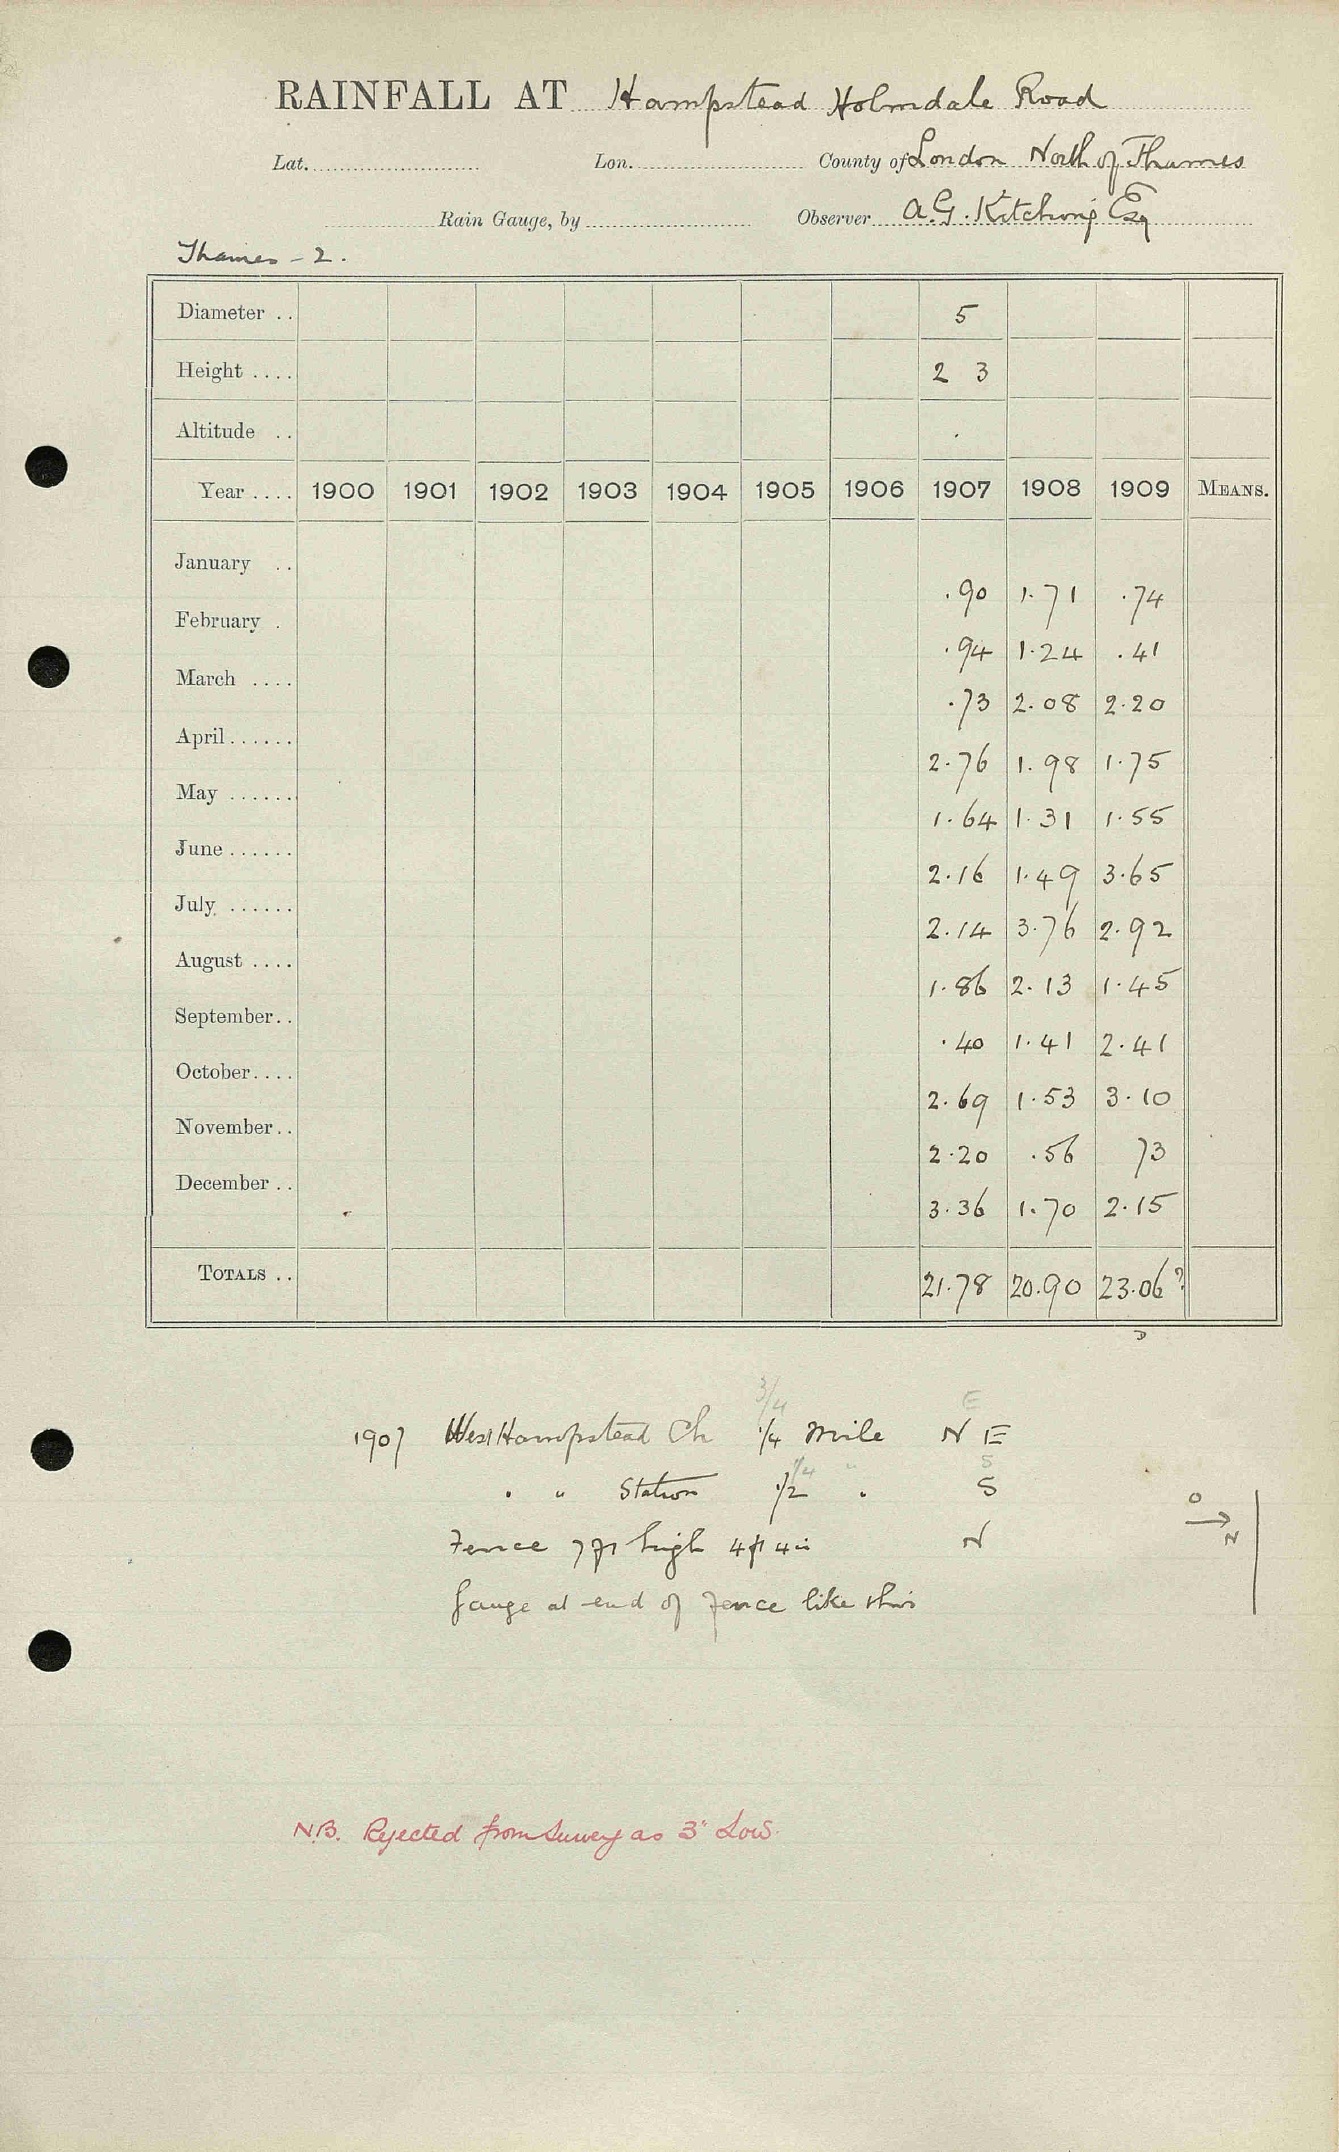 RAINFALL AT Hampstead Holmdale Road
Lat. Lon. County of London North of Thames
Rain Gauge, by Observer A.G. Kitching Esq
Thames - 2.
Diameter .. 5
Height .... 2 3
Altitude ..
Year .... 1900 1901 1902 1903 1904 1905 1906 1907 1908 1909 MEANS.
January .. .90 1.71 .74
February . .94 1.24 .41
March .... .73 2.08 2.20
April...... 2.76 1.98 1.75
May ...... 1.64 1.31 1.55
June ...... 2.16 1.49 3.65
July ...... 2.14 3.76 2.92
August .... 1.86 2.13 1.45
September.. .40 1.41 2.41
October.... 2.69 1.53 3.10
November.. 2.20 .56 73
December .. 3.36 1.70 2.15
TOTALS .. 21.78 20.90 23.06?
D
3/4 E
1907 West Hampstead Ch 1/4 Mile N E
1/4 " S
" " Station 1/2 " S
Fence 7 ft high 4ft 4in N
O
N
gauge at end of fence like this
N.B. Rejected from Survey as 3" Low.